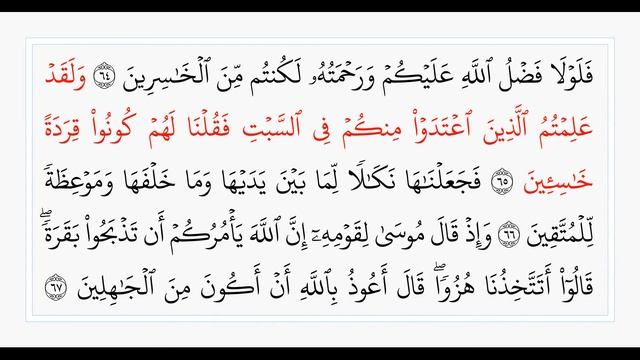 فَلَوۡلَا فَضۡلُ ٱللَّهِ عَلَيۡكُمۡ وَرَحۡمَتُهُۥ لَكُنتُم مِّنَ ٱلۡخَٰسِرِينَ ٦٤ وَلَقَدۡ
عَلِمۡتُمُ ٱلَّذِينَ ٱعۡتَدَوۡاْ مِنكُمۡ فِي ٱلسَّبۡتِ فَقُلۡنَا لَهُمۡ كُونُواْ قِرَدَةً
خَٰسِـِٔينَ ٦٥ فَجَعَلۡنَٰهَا نَكَٰلٗا لِّمَا بَيۡنَ يَدَيۡهَا وَمَا خَلۡفَهَا وَمَوۡعِظَةٗ
لِّلۡمُتَّقِينَ ٦٦ وَإِذۡ قَالَ مُوسَىٰ لِقَوۡمِهِۦٓ إِنَّ ٱللَّهَ يَأۡمُرُكُمۡ أَن تَذۡبَحُواْ بَقَرَةٗۖ
قَالُوٓاْ أَتَتَّخِذُنَا هُزُوٗاۖ قَالَ أَعُوذُ بِٱللَّهِ أَنۡ أَكُونَ مِنَ ٱلۡجَٰهِلِينَ ٦٧